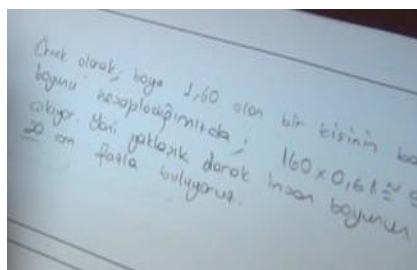 Örnek olarak, boyu 1,60 olan bir kişinin
boyunu hesapladığımızda; 160 x 0,61 ≅
çıkıyor. Yani yaklaşık olarak insan boyunun
20 cm fazla buluyoruz.